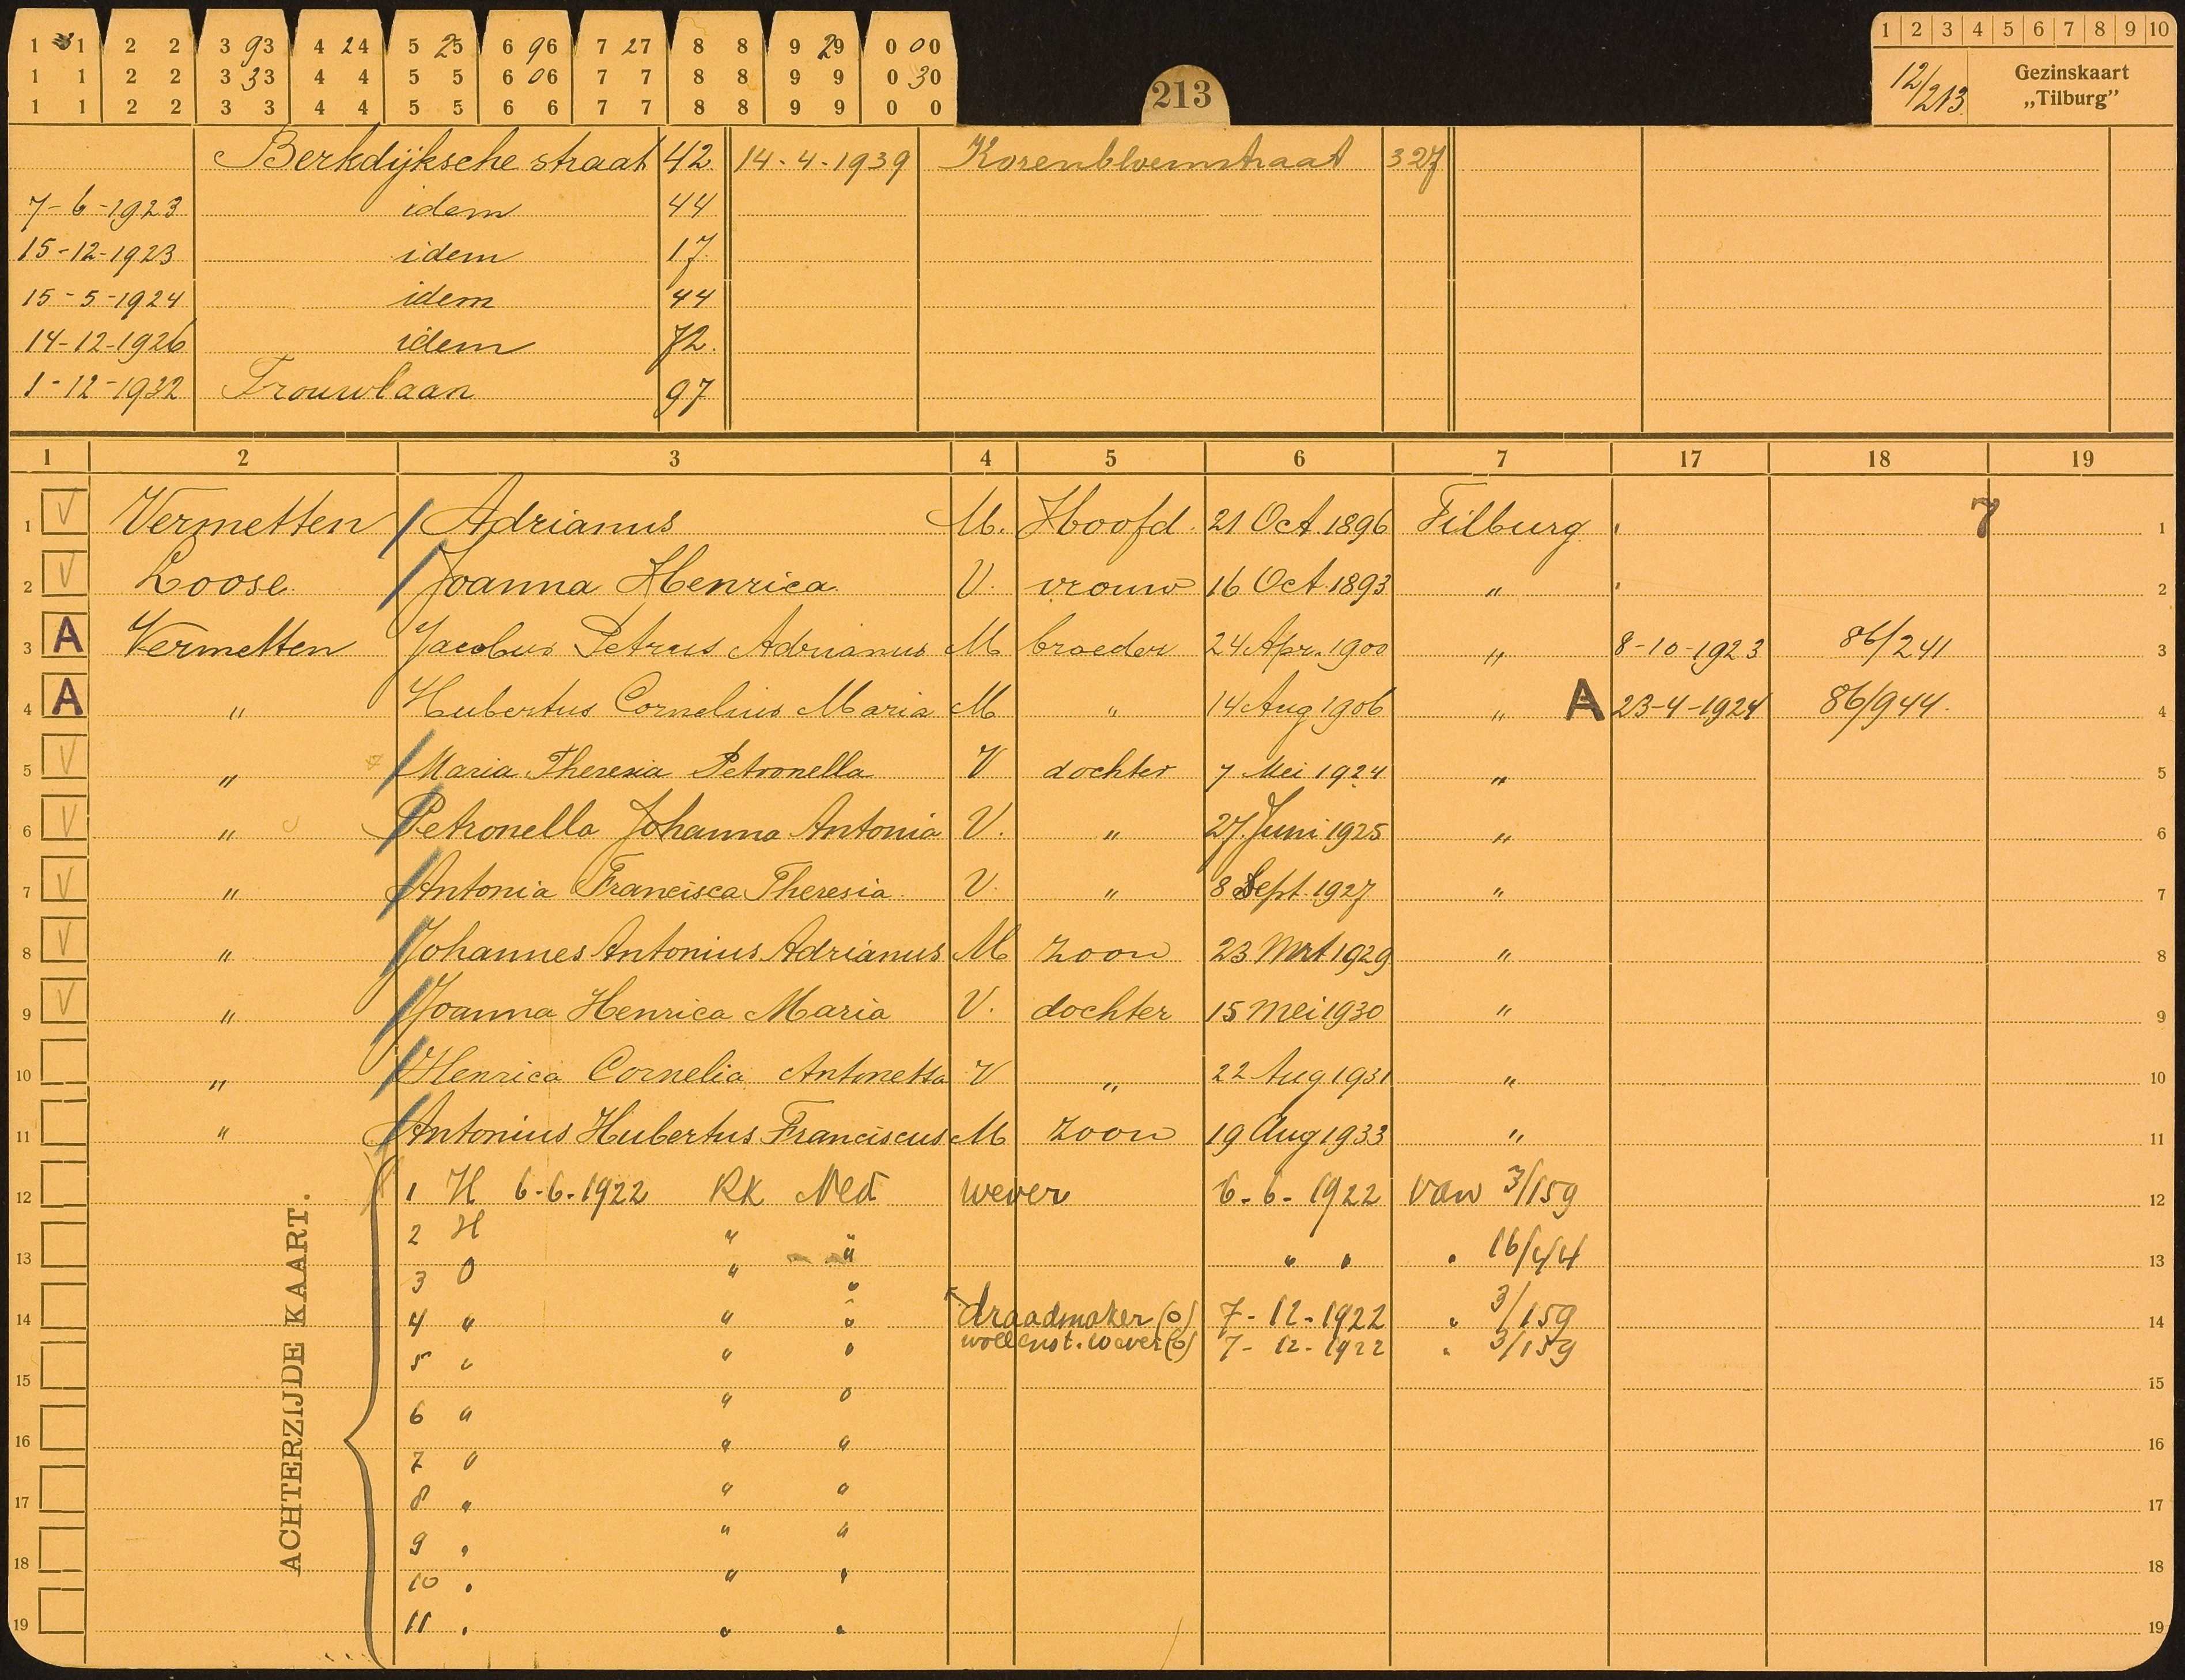 1 1 2 2 3 93 4 24 5 25 6 96 7 27 8 8 9 29 0 00
1 1 2 2 3 33 4 4 5 5 6 06 7 7 8 8 9 9 0 30
1 1 2 2 3 3 4 4 5 5 6 6 7 7 8 8 9 9 0 0
213
1 2 3 4 5 6 7 8 9 10
12/213 Gezinskaart
„Tilburg”
Berkdijksche straat 42 14-4-1939 Korenbloemstraat 327
7-6-1923 idem 44
15-12-1923 idem 17
15-5-1924 idem 44
14-12-1926 idem 72
1-12-1932 Trouwlaan 97
1 2 3 4 5 6 7 17 18 19
1 V Vermetten Adrianus M. Hoofd 21 Oct. 1896 Tilburg 7 1
2 V Loose Joanna Henrica V. vrouw 16 Oct. 1893 " 2
3 A Vermetten Jacobus Petrus Adrianus M broeder 24 Apr. 1900 " 8-10-1923 86/241 3
4 A " Hubertus Cornelius Maria M " 14 Aug 1906 " A 23-4-1924 86/944. 4
5 V " Maria Theresia Petronella V dochter 7 Mei 1924 " 5
6 V " Petronella Johanna Antonia V. " 27 Juni 1925 " 6
7 V " Antonia Francisca Theresia V. " 8 Sept. 1927 " 7
8 V " Johannes Antonius Adrianus M zoon 23 Mrt 1929 " 8
9 V " Joanna Henrica Maria V. dochter 15 Mei 1930 " 9
10 " Henrica Cornelia Antonetta V " 22 Aug 1931 " 10
11 " Antonius Hubertus Franciscus M zoon 19 Aug 1933 " 11
12 1 H 6-6-1922 RK Ned wever 6-6-1922 van 3/159 12
2 H " "
13 " " " 16/44 13
3 O " "
14 4 " " " draadmaker (o) 7-12-1922 " 3/159 14
5 " " " wollenst. wever (o) 7-12-1922 " 3/159
15 15
6 " " "
16 16
7 " " "
17 8 " " " 17
9 " " "
18 18
10 " " "
19 11 " " " 19
ACHTERZIJDE KAART.